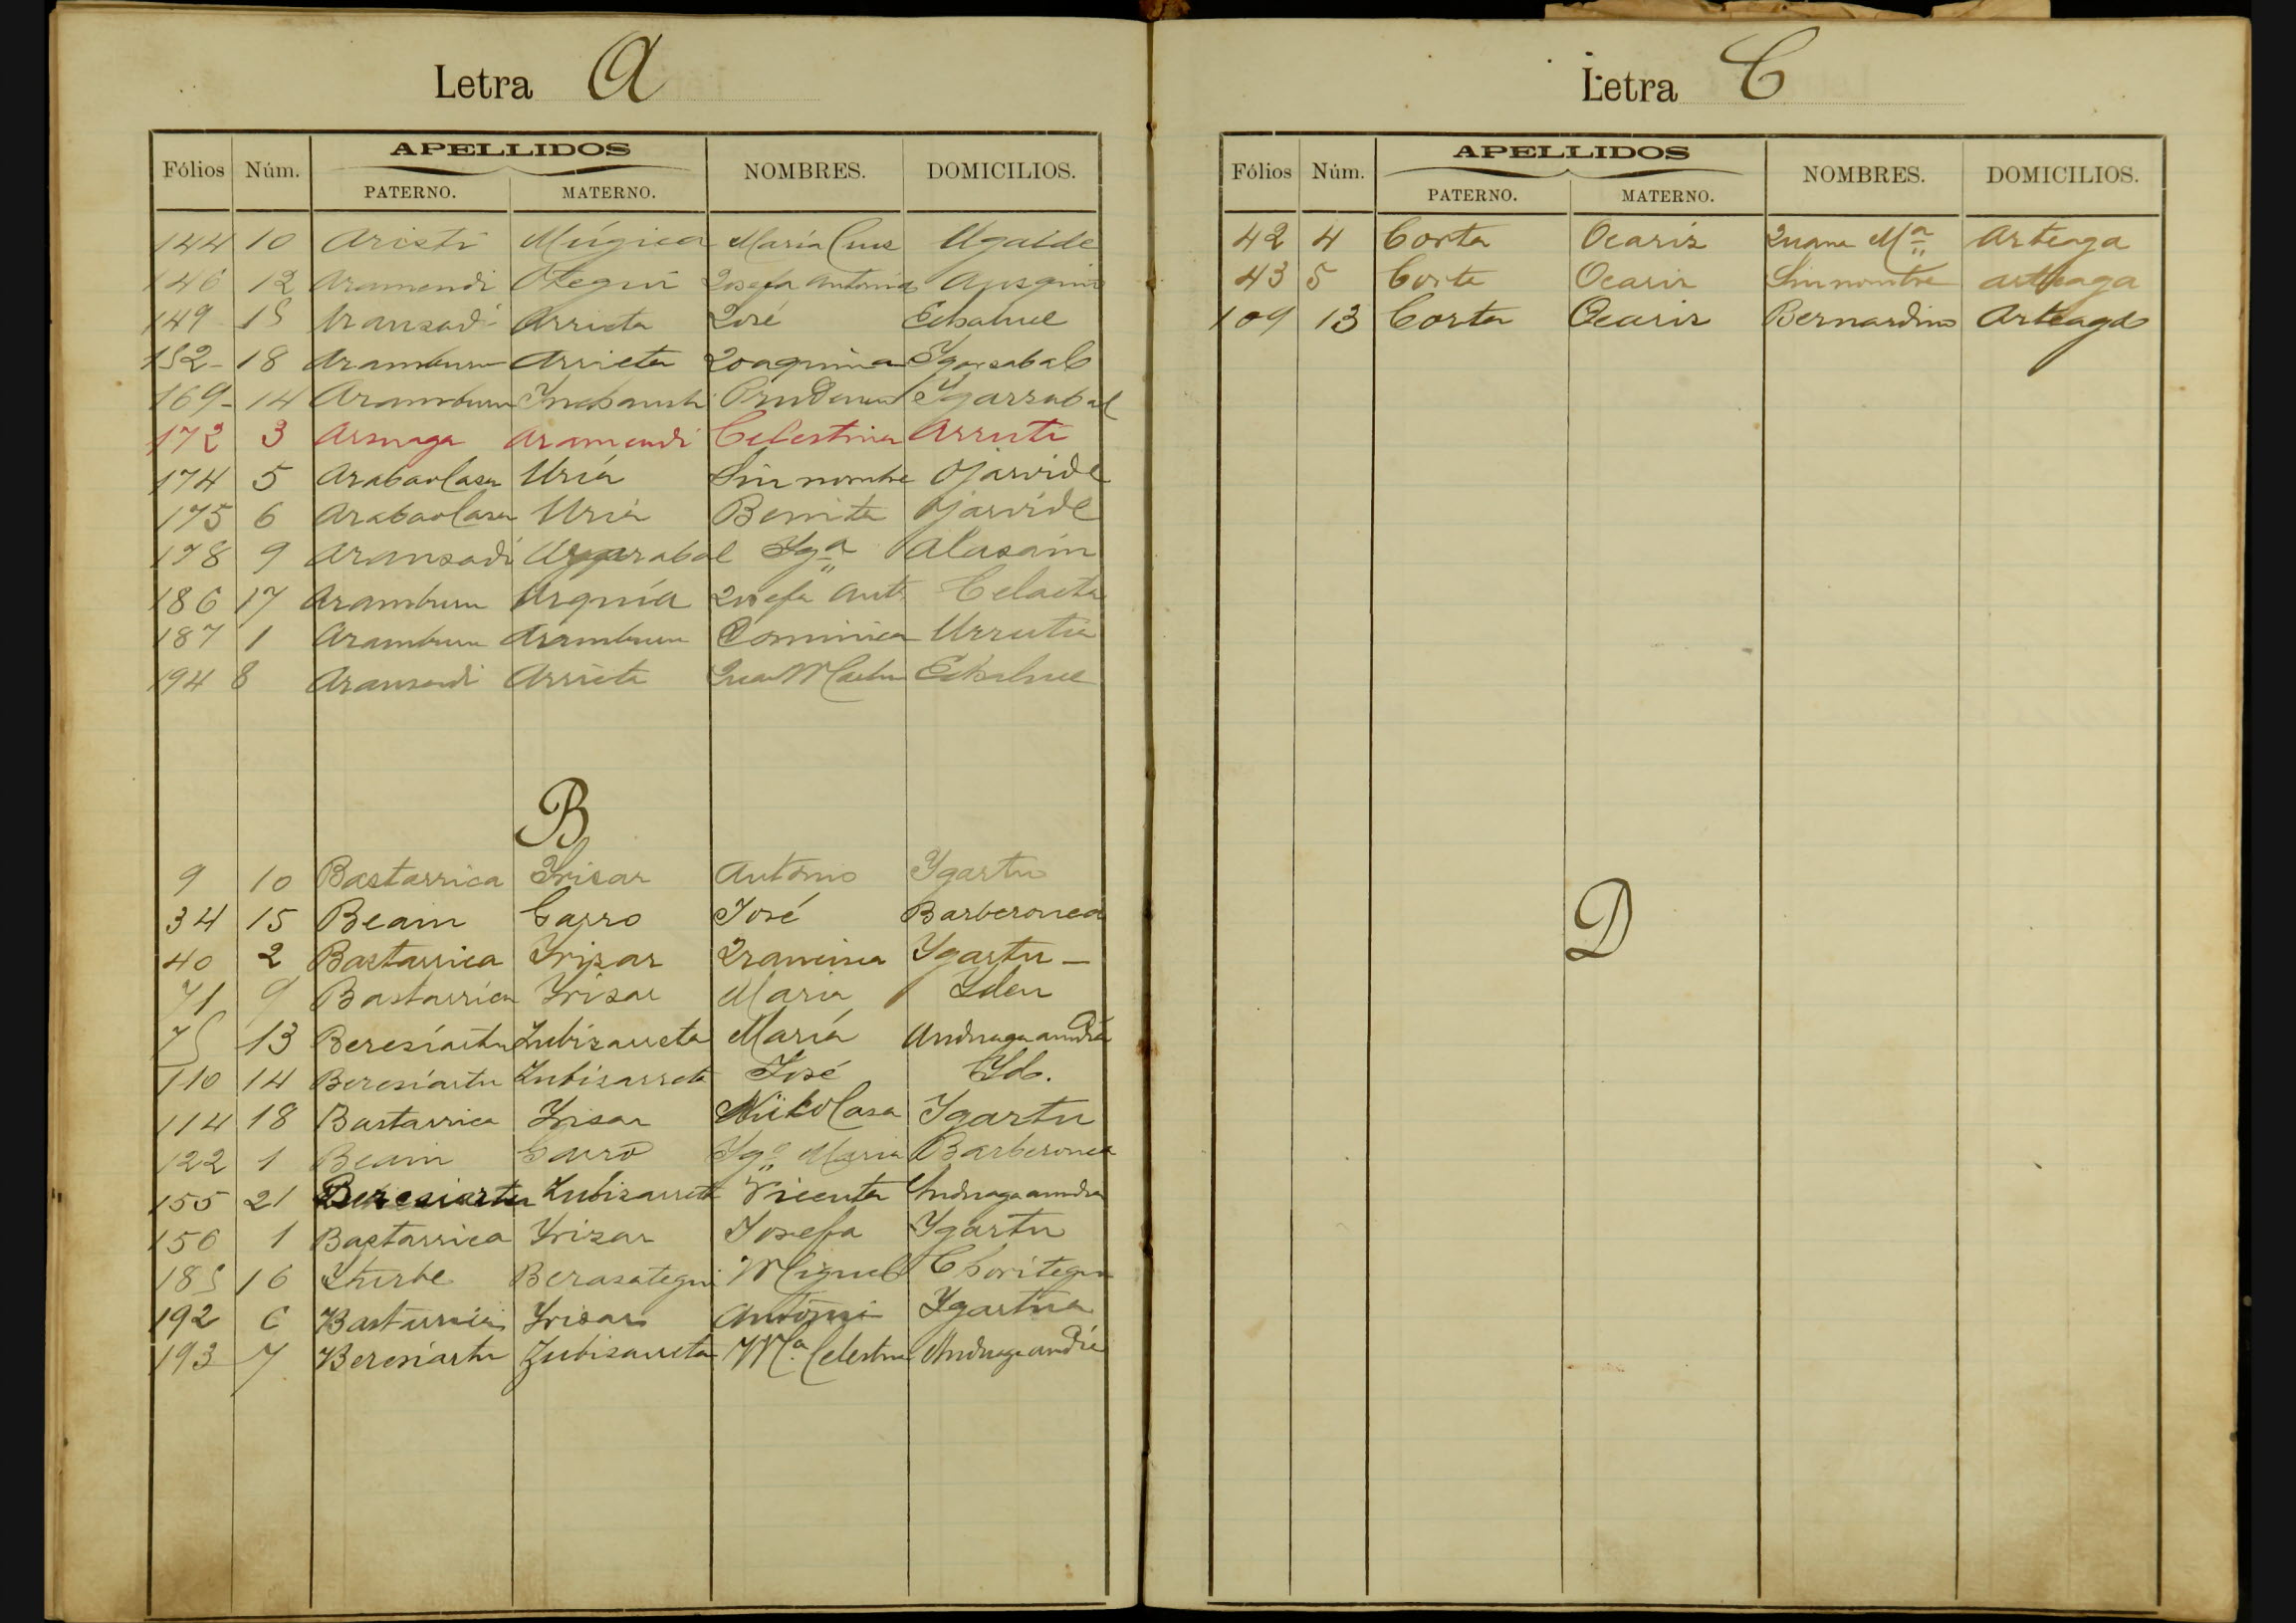 Letra A
Fólios Núm. APELLIDOS NOMBRES. DOMICILIOS.
PATERNO. MATERNO.
144 10 Aristi Múgica María Luis Ugalde
146 12 Aramendi Otegui Josefa Antonia
149 15 Aransadi Arrieta José Echalue
152- 18 Aramburu Arrieta Joaquina Ygarzabal
169- 14 Aramburu Ygarzabal
172 3 Arsuaga Aramendi Celestina Arruti
174 5 Arabaolasa Uría Sin nombre Ojarvide
175 6 Arabaolasa Uria Benita Ojarvide
178 9 Aransadi Yga Alasain
186 17 Aramburu Urquía Josefa Anta Celaeta
187 1 Aramburu Aramburu Dominica Urrutia
194 8 Aransadi Arrieta Echalue
B
9 10 Bastarrica Yrisar Antonio Ygartu
34 15 Beain Garro José Barberonea
40 2 Bastarrica Yrizar Francisca Ygartu —
71 9 Bastarrica Yrisar María Yden
75 13 Beresiartu Zubizarreta María Anduagaandía
110 14 Beresiartu Zubisarreta José Yd.
114 18 Bastarrica Yrisar Nikolasa Ygartu
122 1 Beain Garro Ygo María Barberonea
155 21 Beresiartu Zubizarreta Vicenta Anduagaandia
156 1 Bastarrica Yrizar Josefa Ygartu
185 16 Yturbe Berasategui Miguel Choritegui
192 6 Bastarrica Yrisar Antonia Ygartua
193 7 Beresiartu Zubizarreta Ma. Celestina Anduagaandia
Letra C
Fólios Núm. APELLIDOS NOMBRES. DOMICILIOS.
PATERNO. MATERNO.
42 4 Corta Ocariz Juana Ma Arteaga
43 5 Corta Ocariz Sin nombre Arteaga
109 13 Corta Ocariz Bernardino Arteaga
D